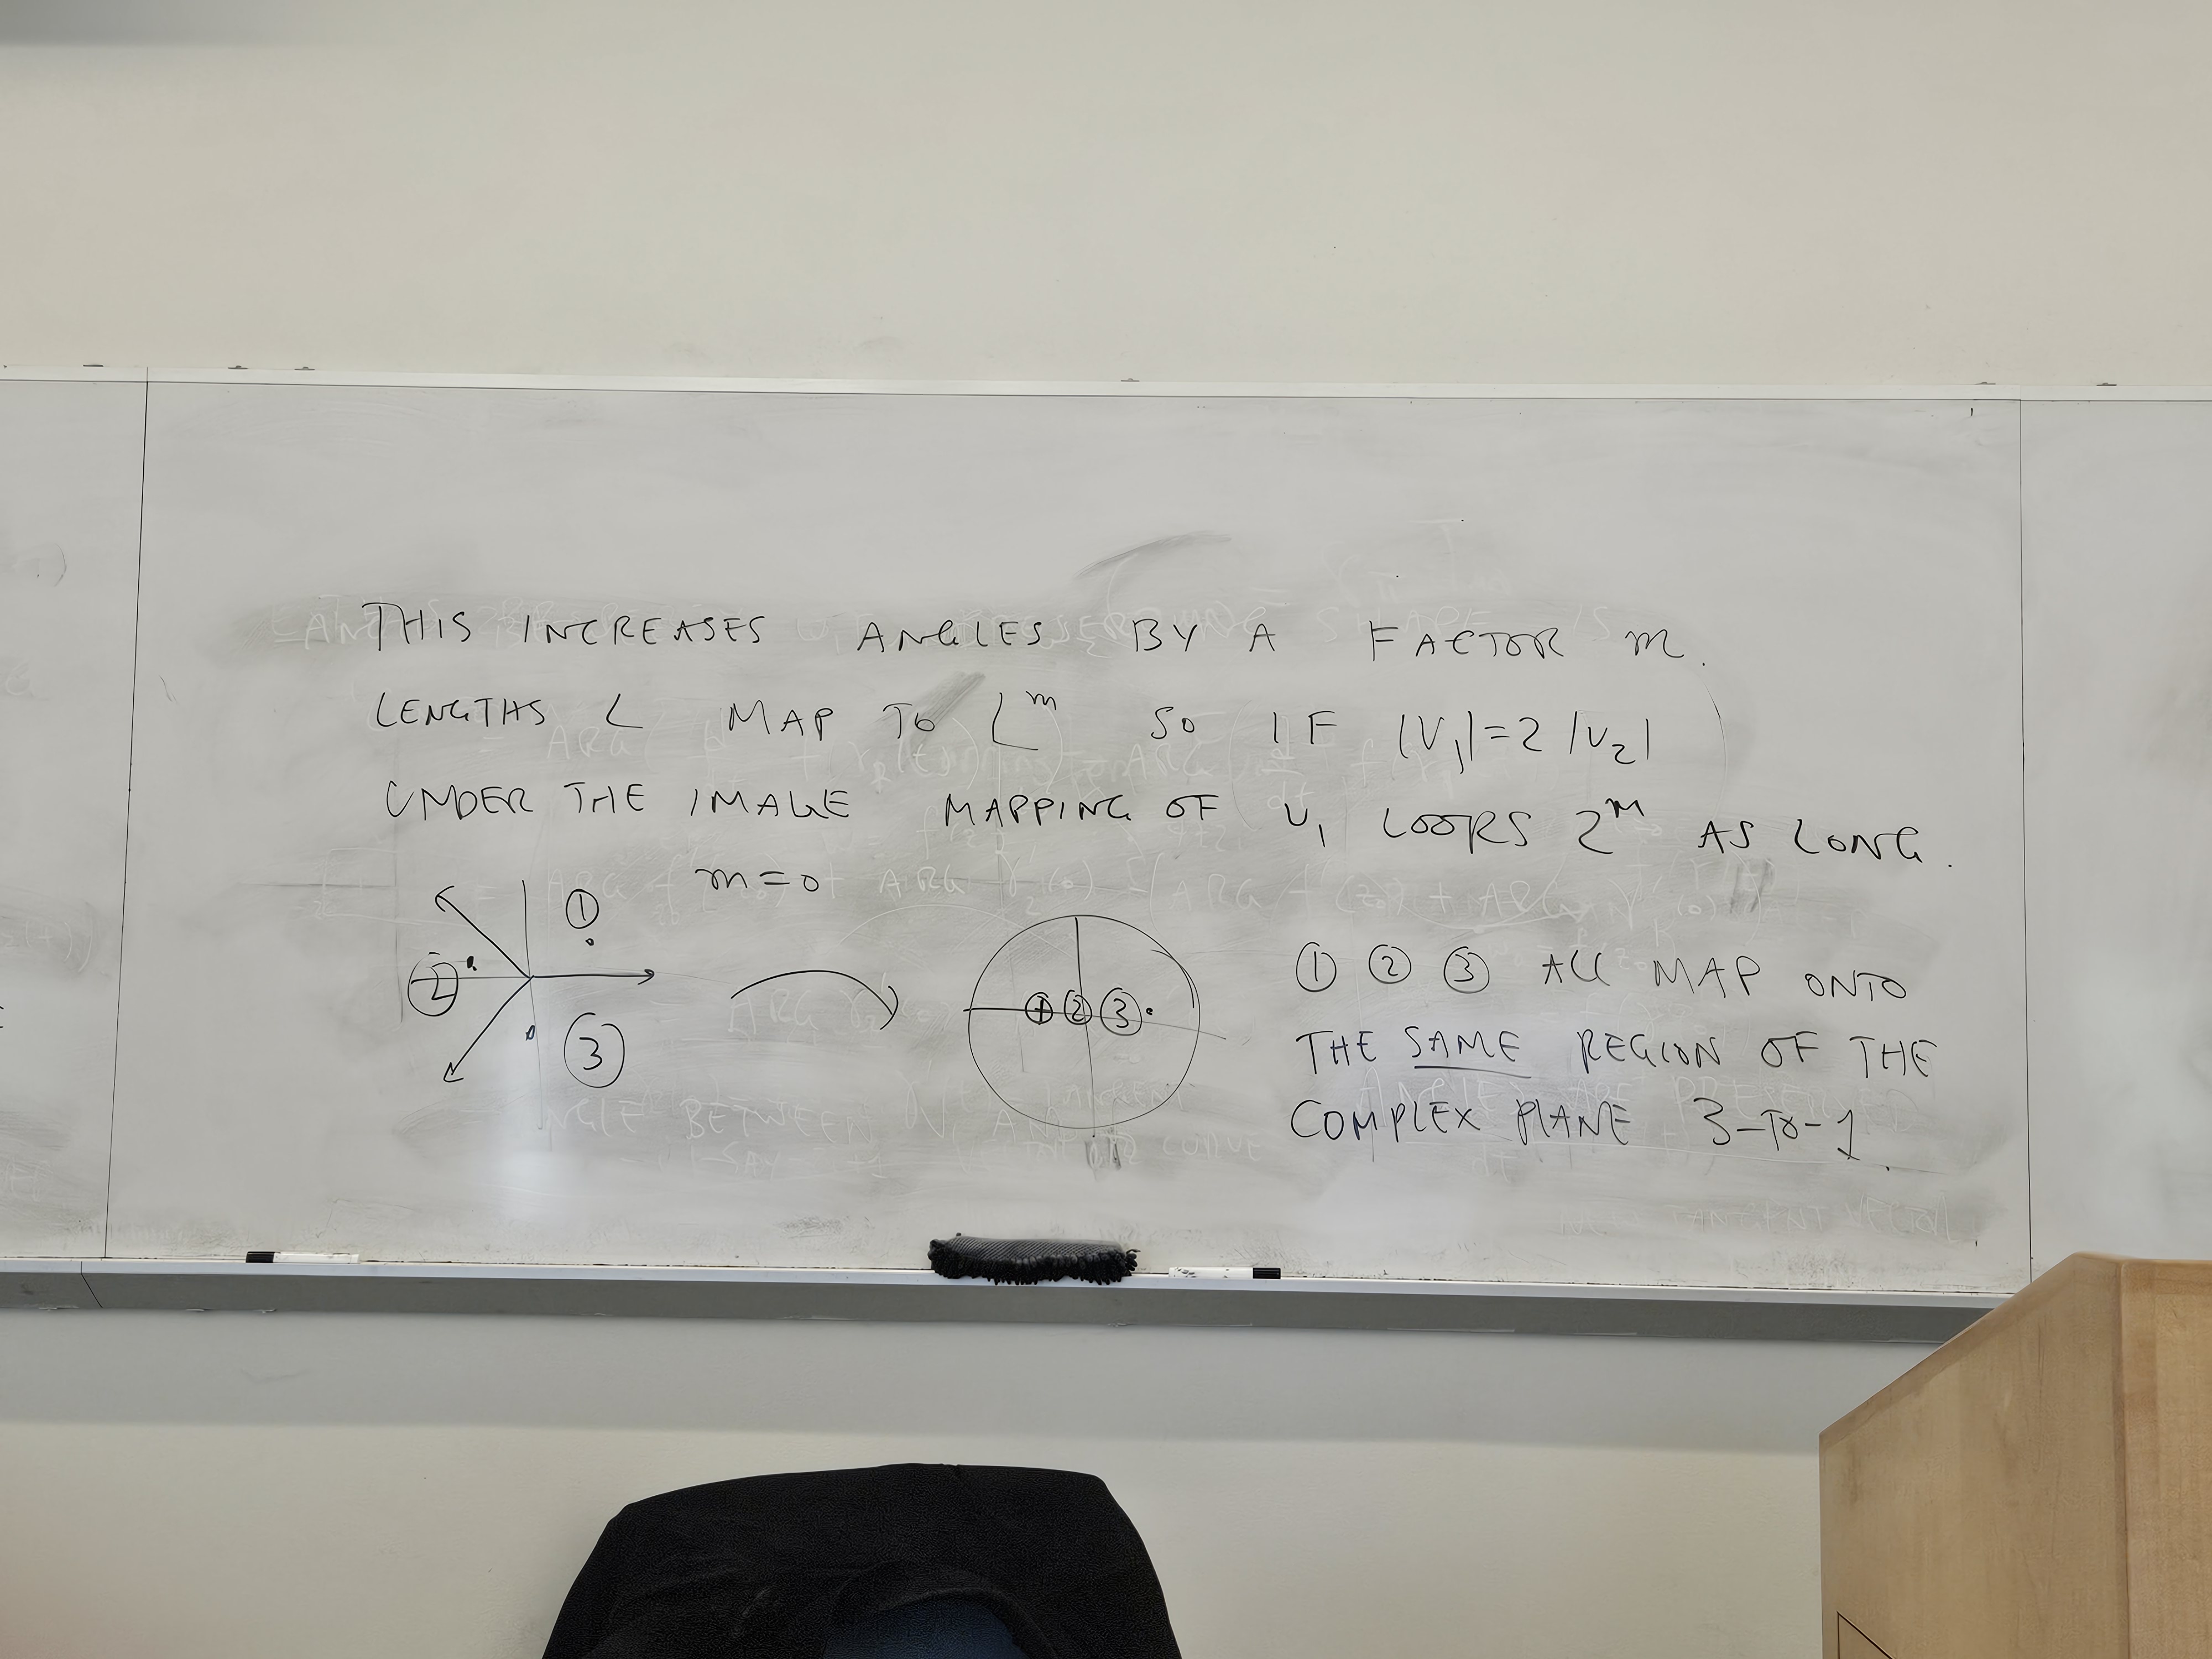 THIS INCREASES ANGLES BY A FACTOR m.
LENGTHS L MAP TO L^m SO IF |V₁|=2|V₂|
UNDER THE IMAGE MAPPING OF V₁ LOOKS 2^m AS LONG.
m=0
① ② ③
① ② ③
① ② ③ ALL MAP ONTO
THE SAME REGION OF THE
COMPLEX PLANE 3-TO-1.